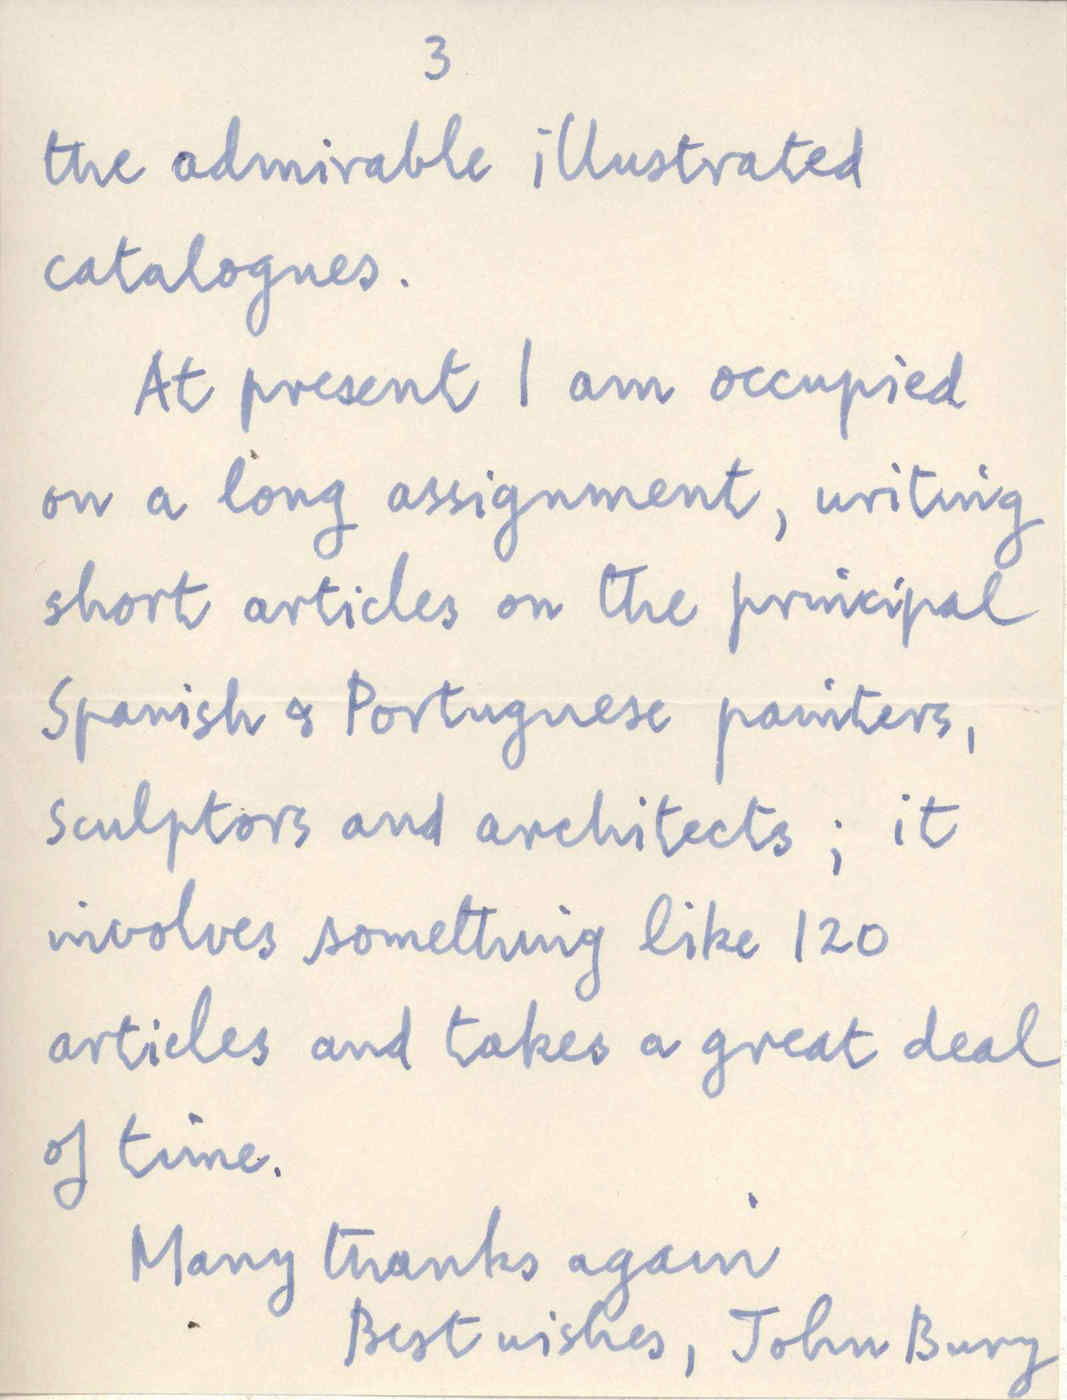 3
the admirable illustrated
catalogues.
At present I am occupied
on a long assignment, writing
short articles on the principal
Spanish & Portuguese painters,
sculptors and architects; it
involves something like 120
articles and takes a great deal
of time.
Many thanks again
Best wishes, John Bury